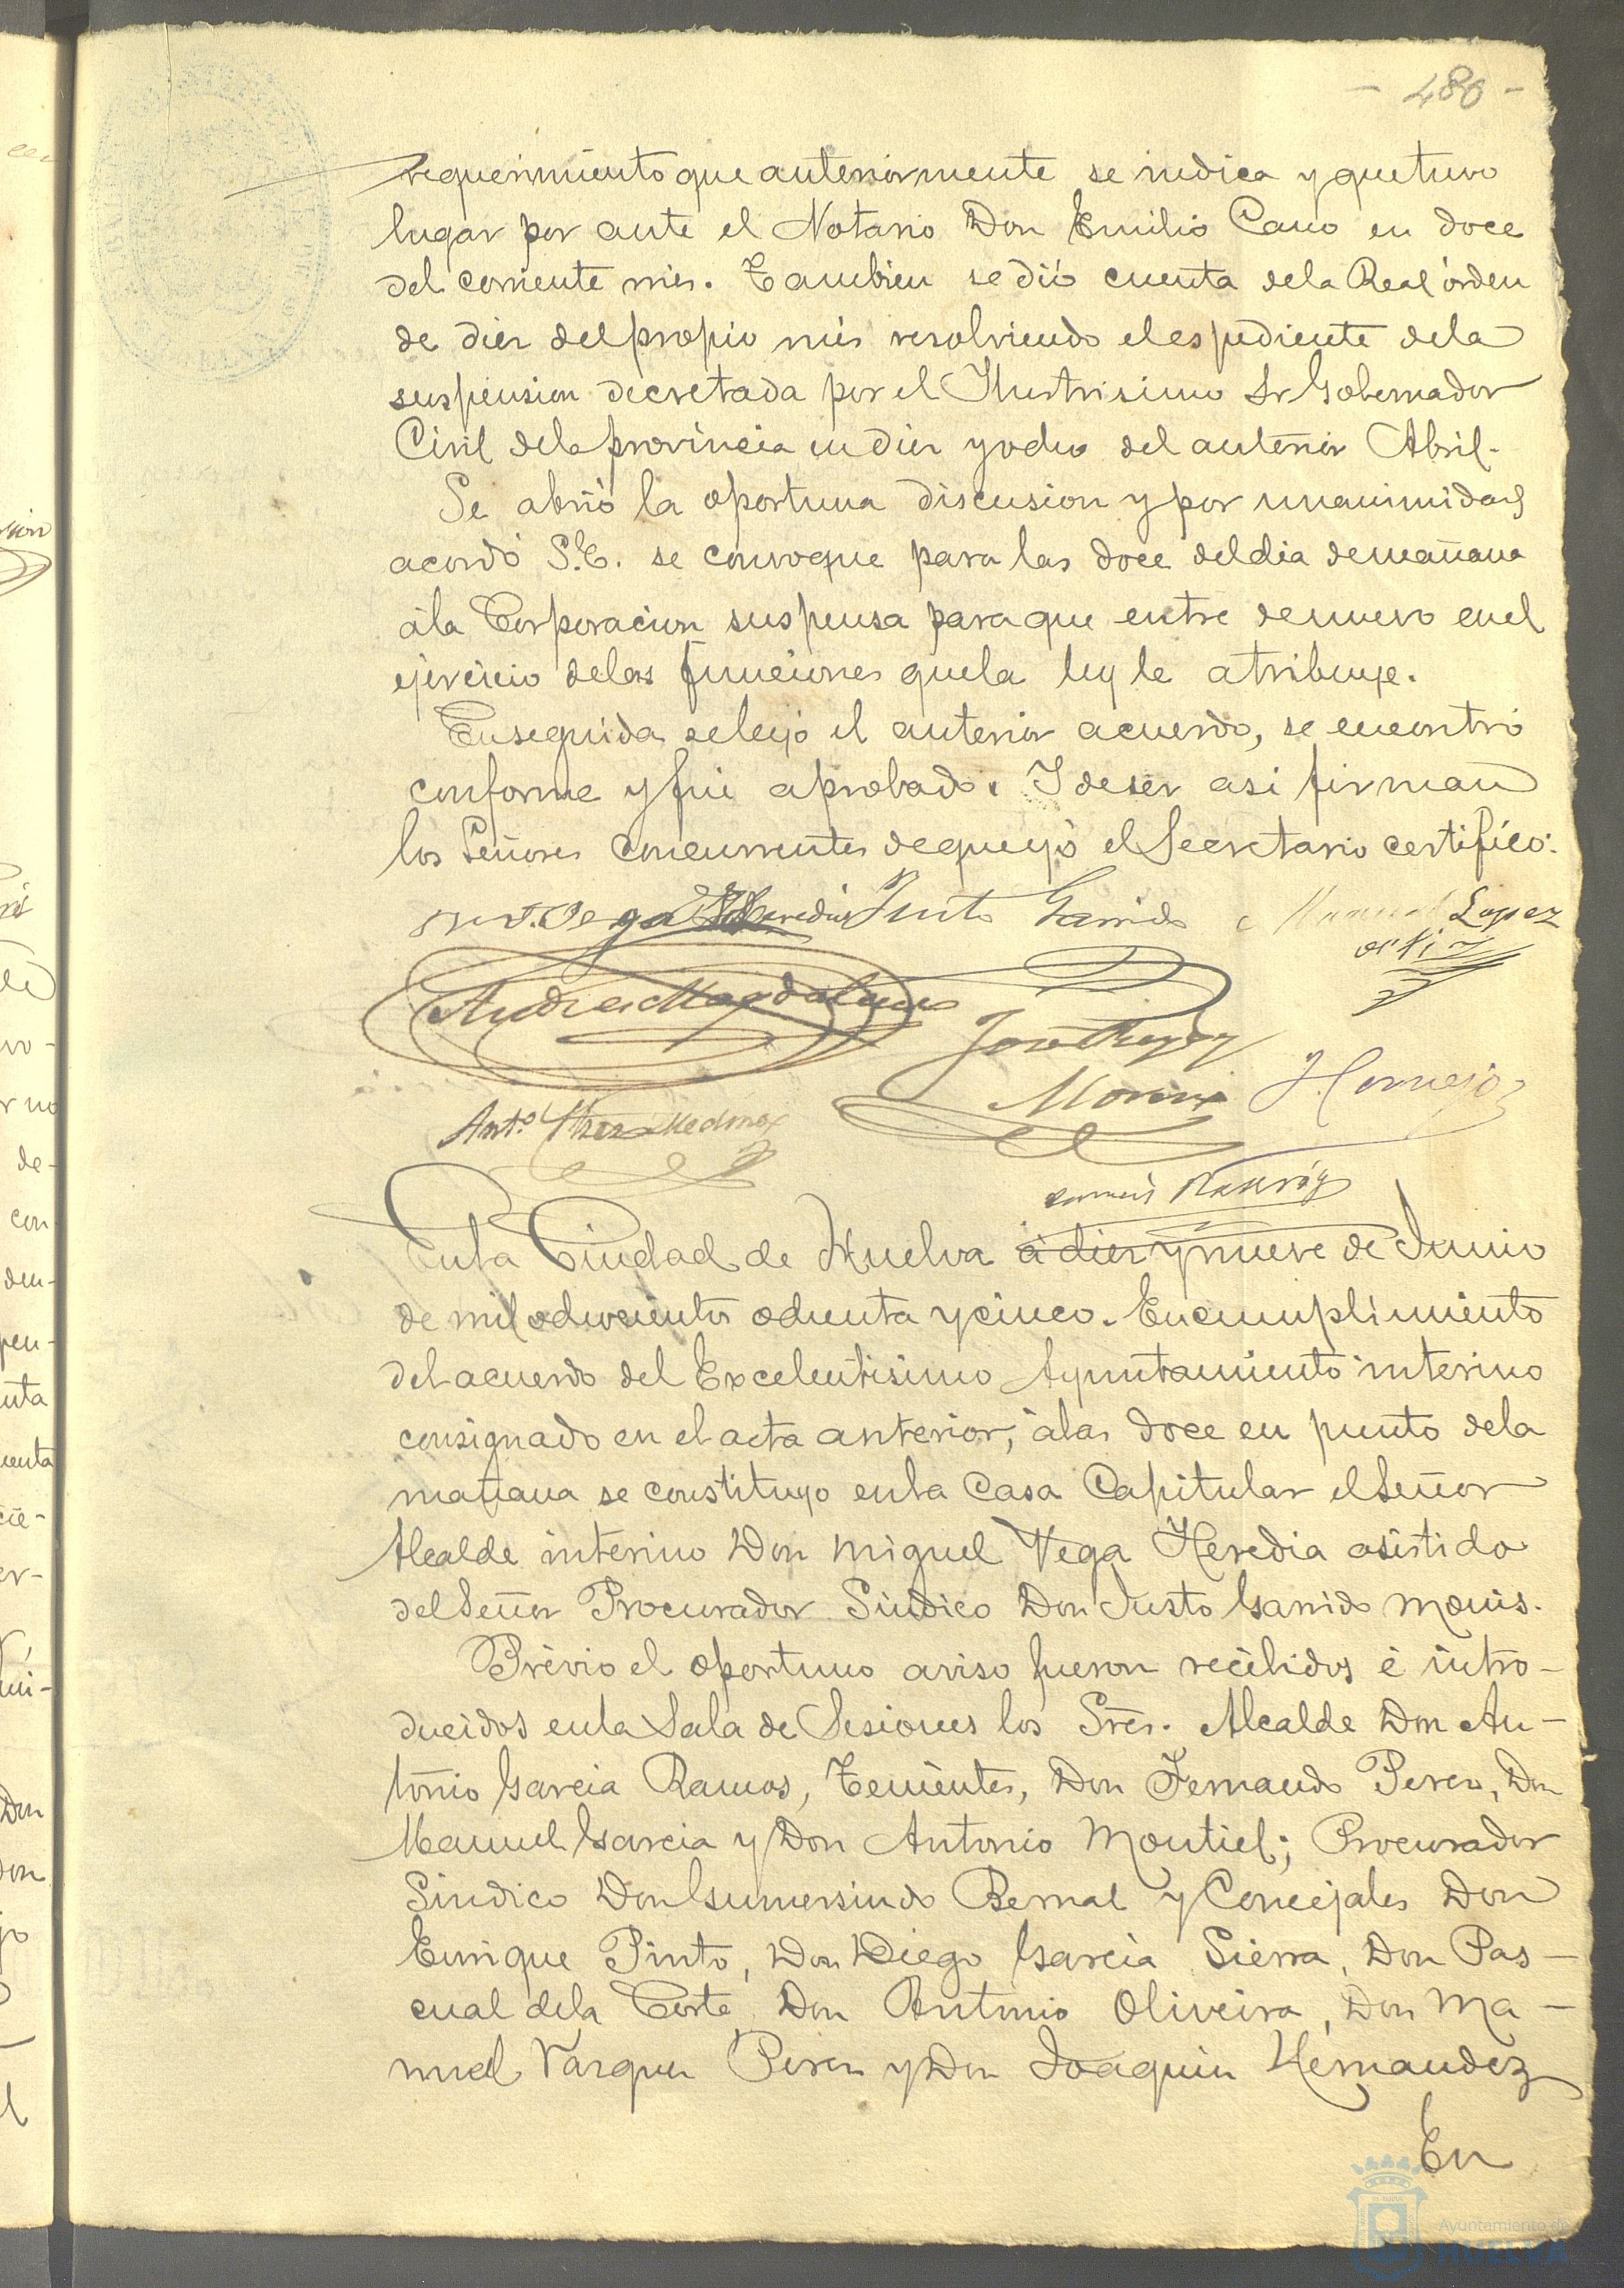 - 480 -
requerimiento que anteriormente se indica y que tuvo
lugar por ante el Notario Don Emilio Cano en doce
del corriente mes. Tambien se dió cuenta de la Real órden
de diez del propio mes resolviendo el espediente de la
suspension decretada por el Ilustrisimo Sr Gobernador
Civil de la provincia en diez y ocho del anterior Abril.
Se abrió la oportuna discusion y por unanimidad
acordó S.E. se convoque para las doce del dia de mañana
á la Corporacion suspensa para que entre de nuevo en el
ejercicio de las funciones que la ley le atribuye.
Enseguida se leyó el anterior acuerdo, se encontró
conforme y fué aprobado. I de ser asi firman
los Señores concurrentes de que yó el Secretario certifico:
Vega Heredia Justo Garrido Manuel Lopez
Andres Magdaleno
José
Moreno J. Cornejo
Anto. Medina
En la Ciudad de Huelva á diez y nueve de Junio
de mil ochocientos ochenta y cinco. En cumplimiento
del acuerdo del Excelentisimo Ayuntamiento interino
consignado en el acta anterior, á las doce en punto de la
mañana se constituyo en la Casa Capitular el Señor
Alcalde interino Don Miguel Vega Heredia asistido
del Señor Procurador Sindico Don Justo Garrido Monis.
Prévio el oportuno aviso fueron recibidos é intro-
ducidos en la Sala de Sesiones los Sres. Alcalde Don An-
tonio Garcia Ramos, Tenientes, Don Fernando Perez, Don
Manuel Garcia y Don Antonio Montiel; Procurador
Sindico Don Gumersindo Bernal y Concejales Don
Enrique Pinto, Don Diego Garcia Sierra, Don Pas-
cual de la Corte, Don Antonio Oliveira, Don Ma-
nuel Vazquez Perez y Don Joaquin Hernandez
En
Ayuntamiento de
HUELVA